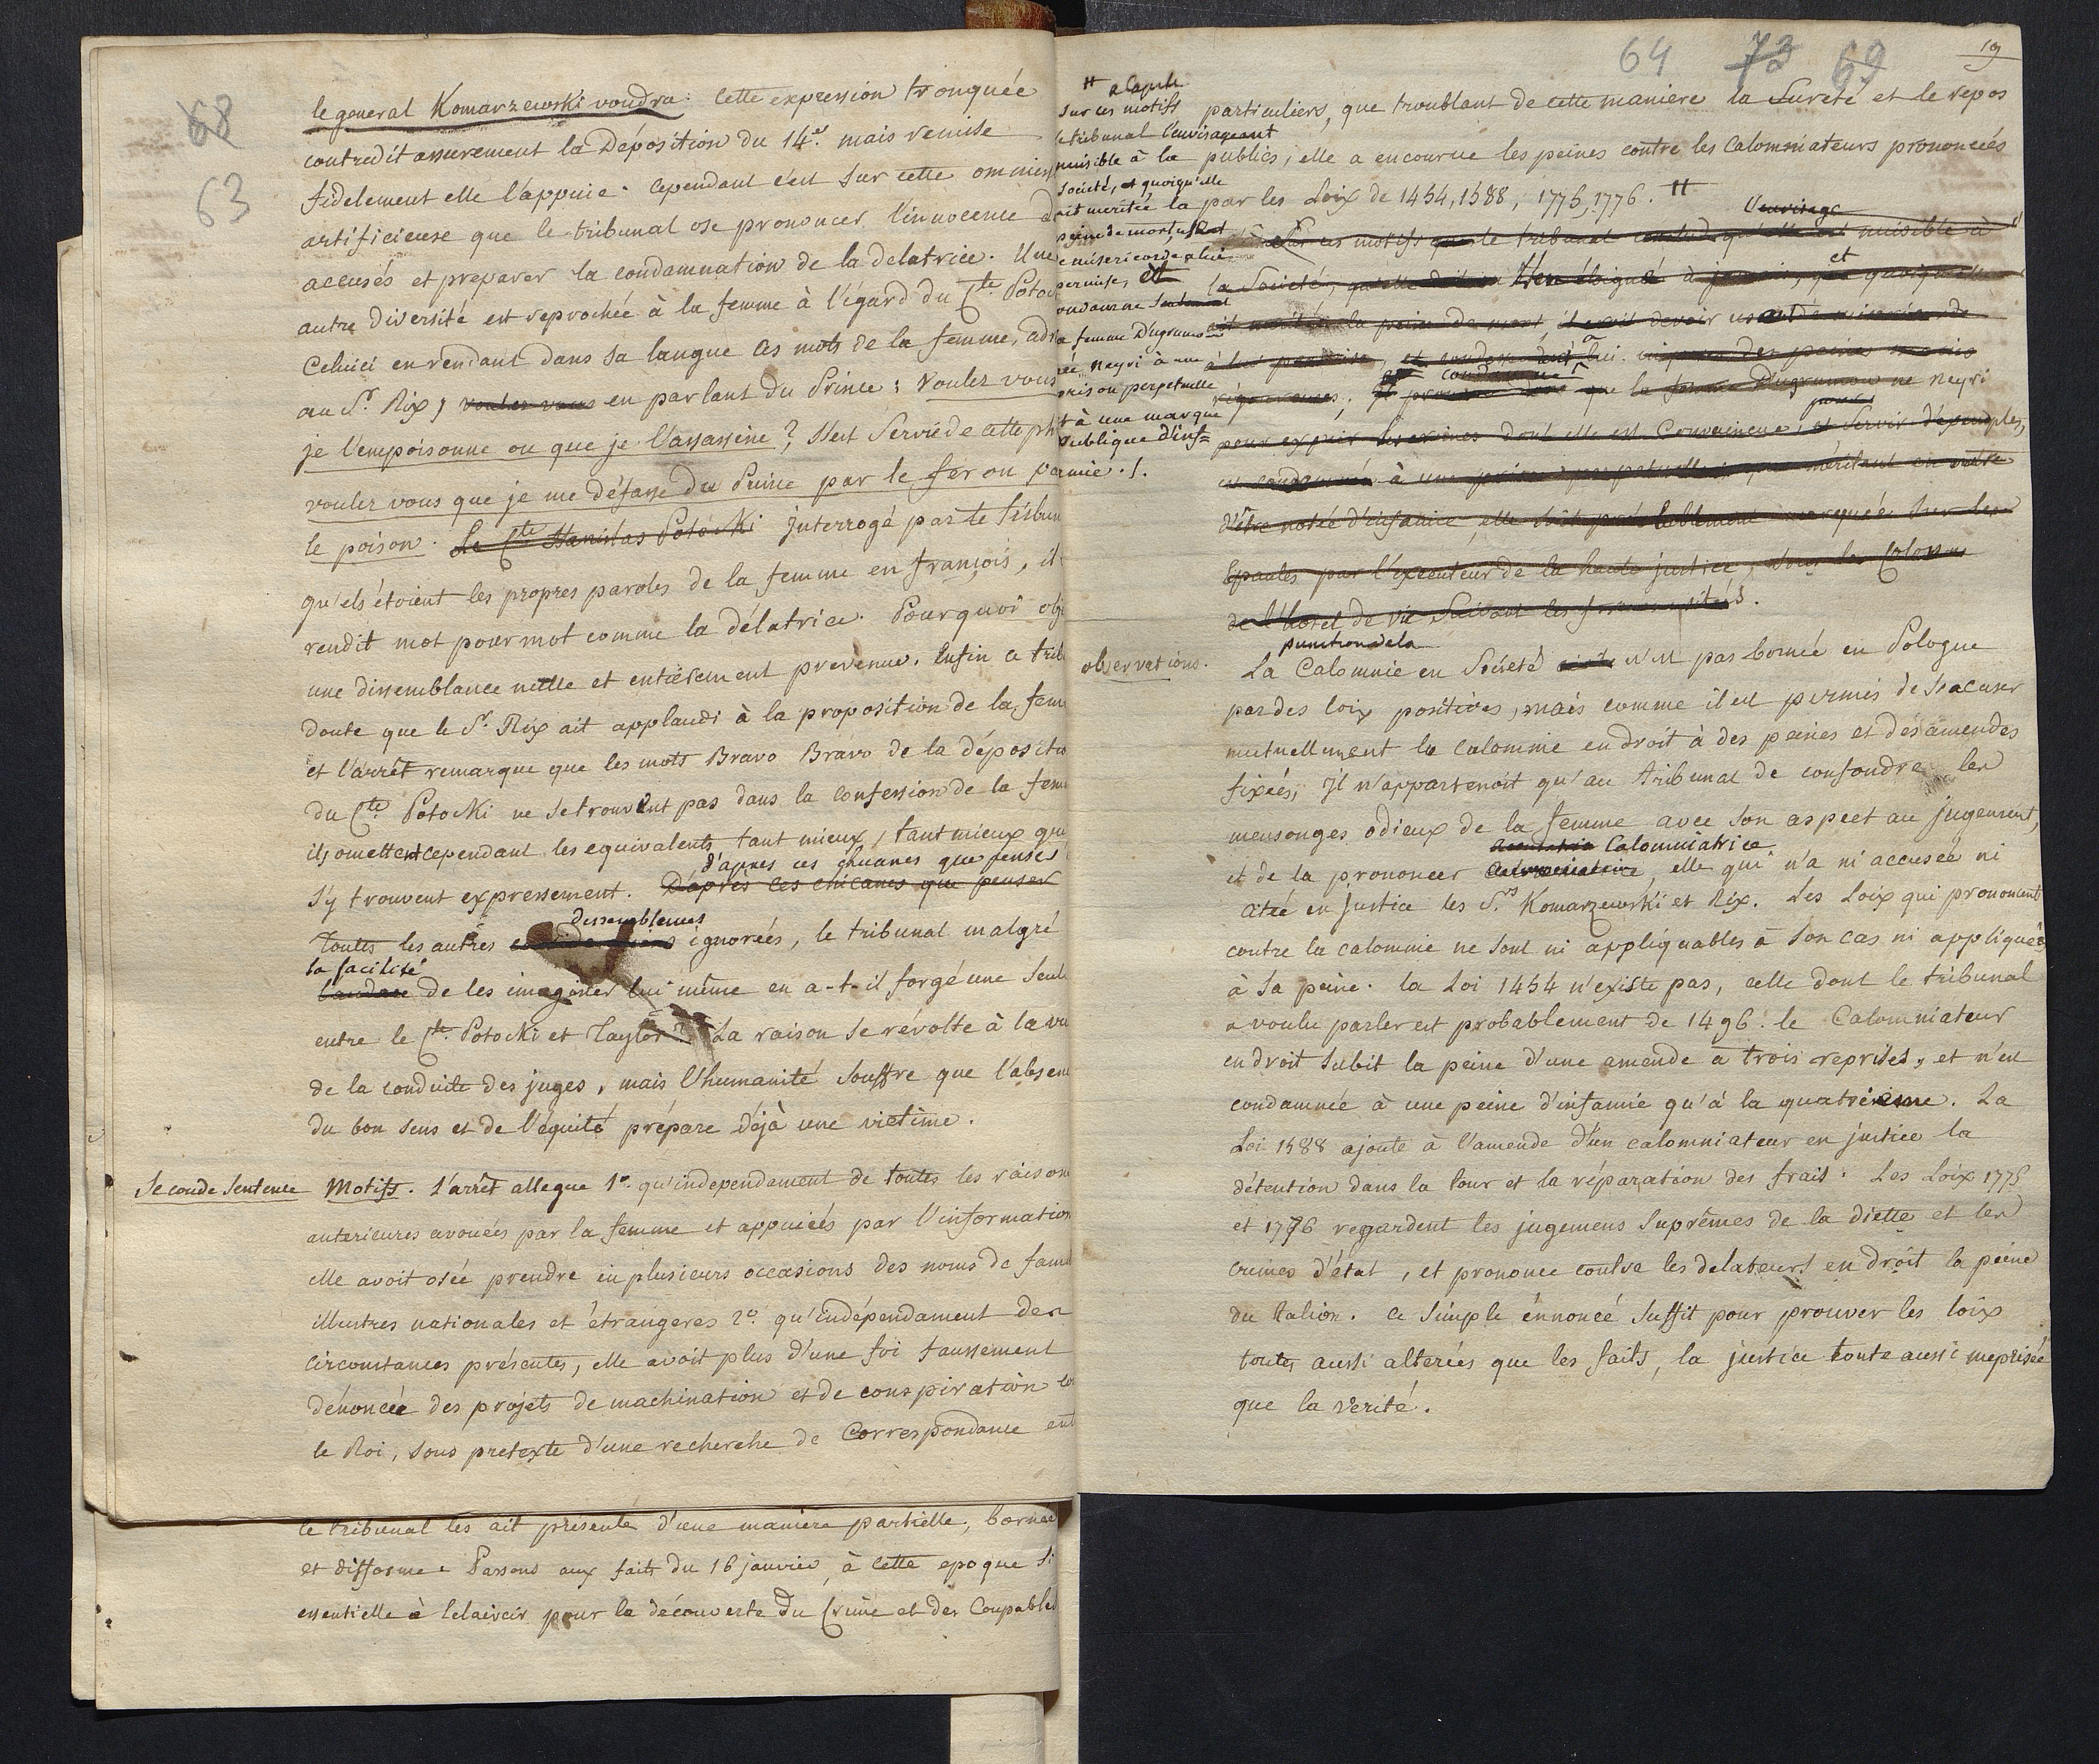 68
63
le general Komarzewski voudra. Cette expression tronquée
contredit assurement la Déposition du 14.e mais remise
fidelement elle l'appuie. Cependant c'est sur cette
artificieuse que le tribunal ose prononcer l'innocence
accusés et preparer la condamnation de la delatrice. Une
autre diversité est reprochée à la femme à l'égard du Cte. Potoc
Celuici en rendant dans sa langue les mots de la femme,
au Sr. Rix, voulez vous en parlant du Prince: Voulez vous
je l'empoisonne ou que je l'assassine? s'est servi de cette
voulez vous que je me défasse du Prince par le fer ou
le poison. Le Cte Stanislas Potocki Interrogé par le tribun
qu'els étoient les propres paroles de la femme en françois, il
rendit mot pour mot comme la délatrice. Pourquoi
une dissemblance nulle et entièrement prevenue. Enfin ce trib
doute que le Sr. Rix ait applaudi à la proposition de la fem
et l'arrêt remarque que les mots Bravo Bravo de la dépositio
du Cte Potocki ne se trouvent pas dans la confession de la fem
ils omettent cependant les equivalents tant mieux, tant mieux qui
d'apres ces chicanes que penser
s'y trouvent expressement. D'après ces chicanes que penser
dissemblances
Toutes les autres ignorées, le tribunal malgré
la facilité
l'audace de les imaginer lui même en a-t-il forgé une seule
entre le Cte. Potocki et Taylor? La raison se révolte à la vu
de la conduite des juges, mais l'humanité souffre que l'absen
du bon sens et de l'équité prépare déjà une victime.
Seconde Sentence Motifs. L'arrêt allegue 1o. qu'independament de toutes les raisons
anterieures avouées par la femme et appuiées par l'information
elle avoit osée prendre en plusieurs occasions des noms de fami
illustres nationales et étrangeres 2o. qu'indépendament des
circonstances présentes, elle avoit plus d'une foi faussement
dénoncée des projets de machination et de conspiration
le Roi, sous pretexte d'une recherche de Correspondance ent
le tribunal les ait présenté d'une maniere partielle, bornée
et difforme. Passons aux faits du 16 janvier, à cette epoque si
essentielle à éclaircir pour la découverte du Crime et des Coupables
64 73 69
19
Sur ces motifs
le tribunal l'envisageant
nuisible à la
societé, et quoiqu'elle
ait meritée la
peine de mort,
misericorde
permise, et
condamne
la femme D'ugrumow
née Neyri à une
prison perpetuelle
et à une marque
publique d'inf=
amie.
particuliers, que troublant de cette maniere la Sureté et le repos
publics, elle a encourue les peines contre les Calomniateurs prononcées
par les Loix de 1454, 1588, 1775, 1776.
l'envisage
Sur ces motifs que le tribunal nuisible à
et
la Societé, éloigné à jamais, quoiqu'elle
ait meritée la peine de mort, il croit devoir user de misericorde
à lui permise, des peines moins
rigoureuses, que la femme D'ugrumow née Neyri
pour expier les crimes dont elle est Convaincue, et servir d'exemples,
est condamnée à une prison perpetuelle, que méritant en outre
d'être notée d'infamie, elle soit préalablement marquée sur les
Epaules par l'executeur de la haute justice,
de l'hotel de vile Suivant les formes usitées.
punition de la
observations. La Calomnie en Société n'est pas bornée en Pologne
par des loix positives, mais comme il est permis de s'accuser
mutuellement la calomnie en droit à des peines et des amendes
fixées; Il n'appartenoit qu'au tribunal de confondre les
mensonges odieux de la femme avec son aspect au jugement,
Calomniatrice
et de la prononcer calomniatrice, elle qui n'a ni accusée ni
citée en justice les Srs Komarzewski et Rix. Les Loix qui prononcent
contre la calomnie ne sont ni appliquables à son cas ni appliquées
à sa peine. la Loi 1454 n'existe pas, celle dont le tribunal
a voulu parler est probablement de 1496. le Calomniateur
en droit subit la peine d'une amende à trois reprises, et n'est
condamnée à une peine d'infamie qu'à la quatrieme. La
Loi 1588 ajoute à l'amende d'un calomniateur en justice la
détention dans la tour et la réparation des frais. Les Loix 1775
et 1776 regardent les jugemens Suprêmes de la diette et les
crimes d'état, et prononce contre les delateurs en droit la peine
du talion. ce simple énnoncé suffit pour prouver les loix
toutes aussi alterées que les faits, la justice toute aussi meprisée
que la verité.